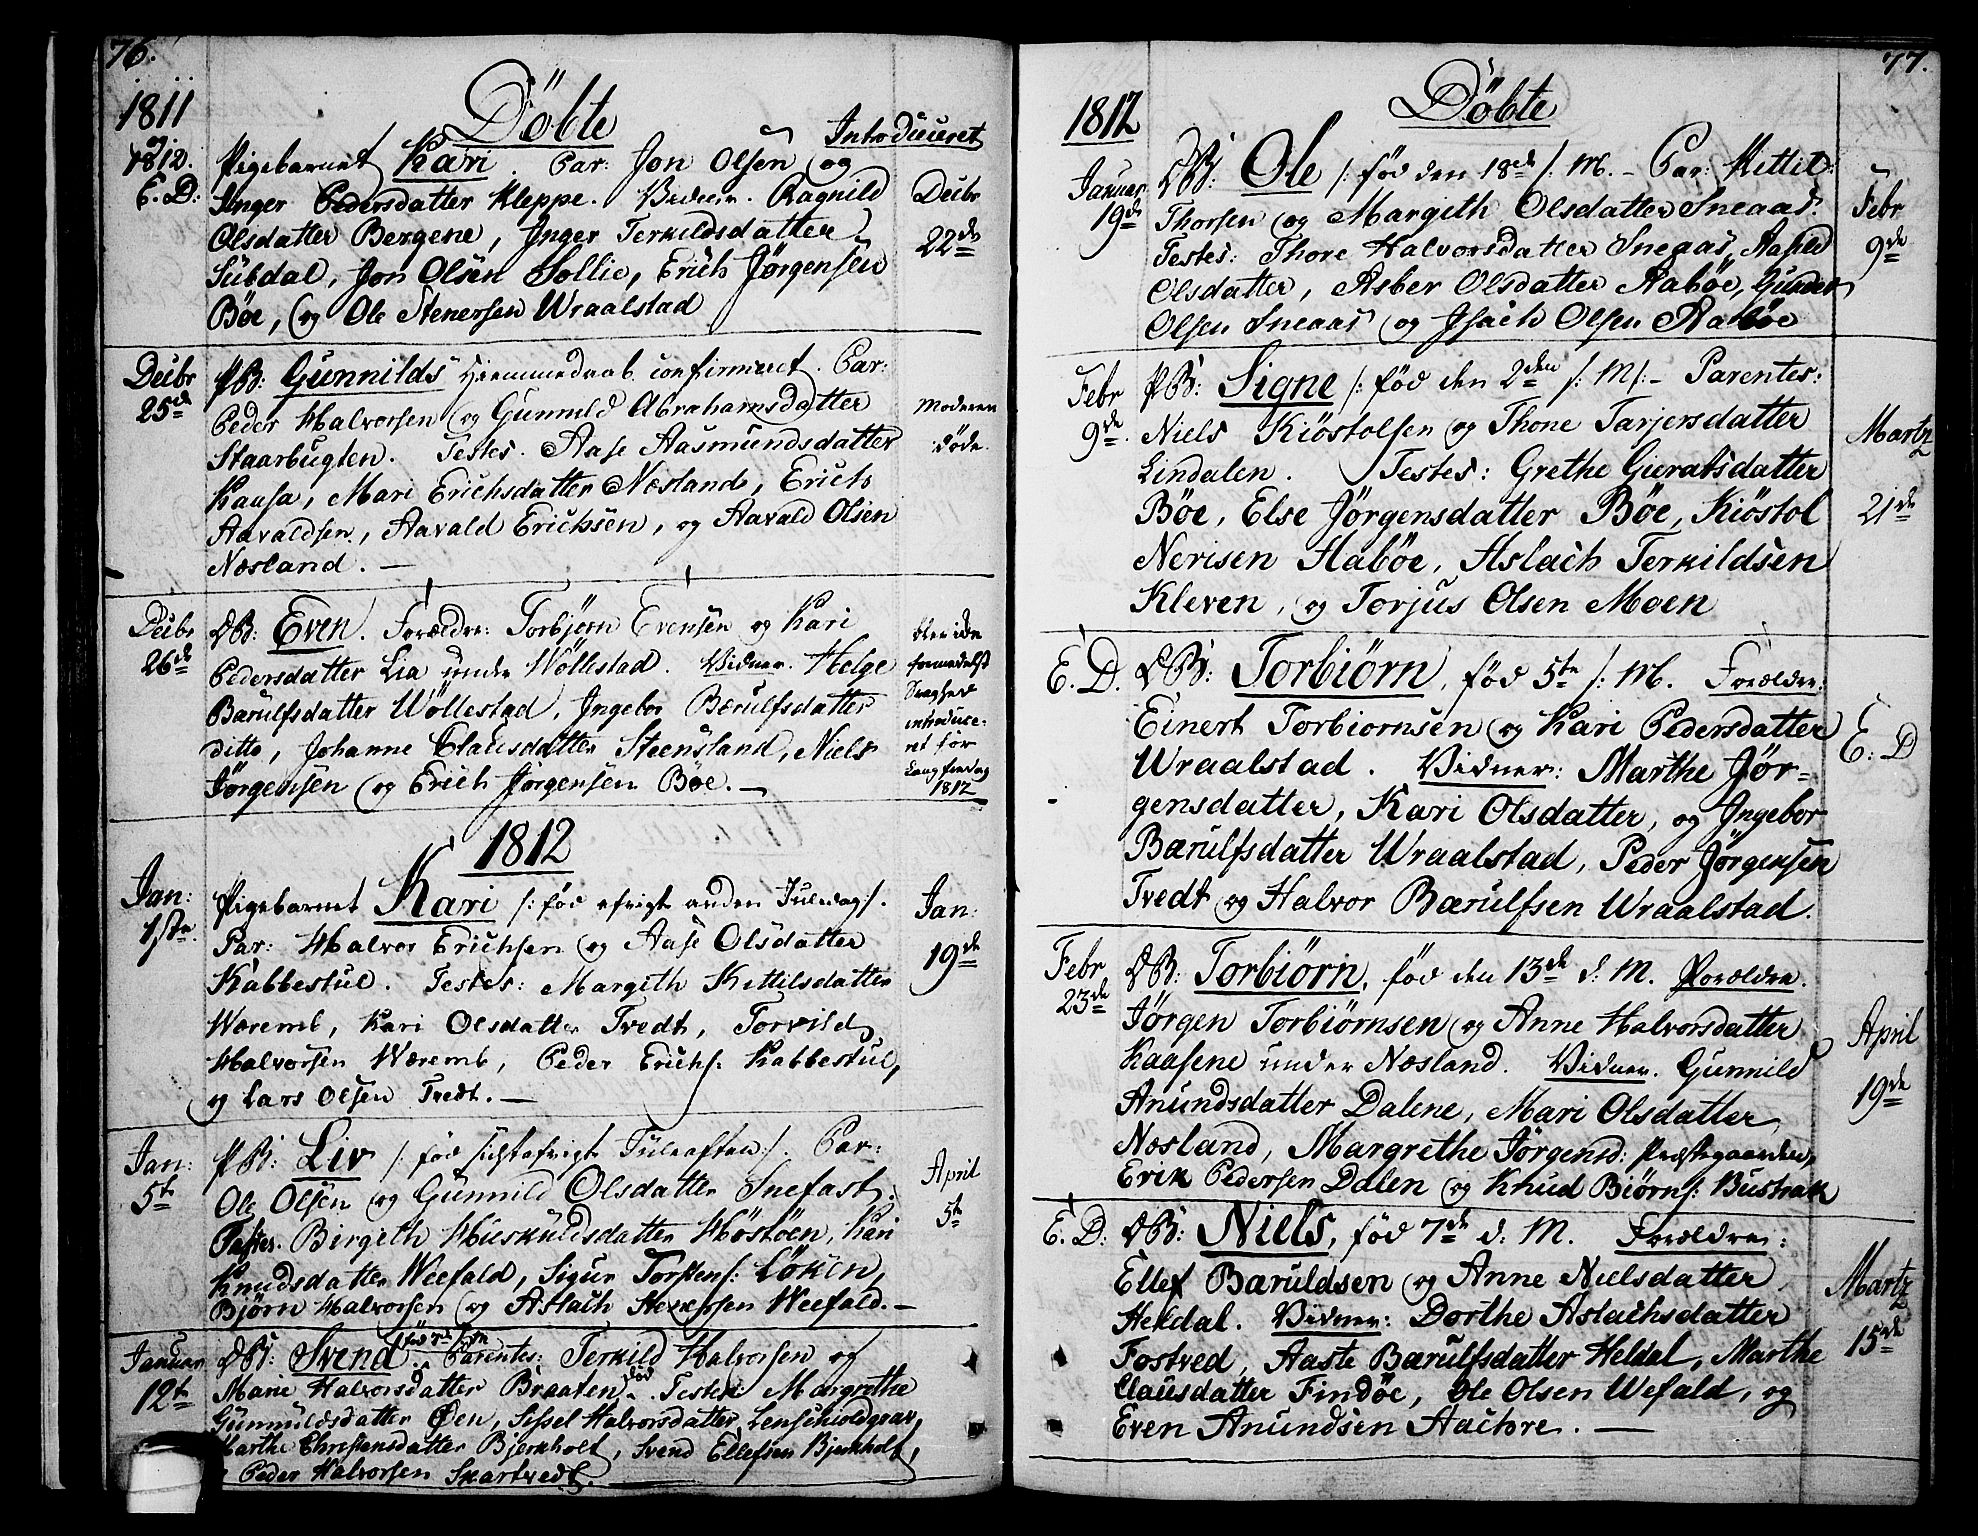 76.
1811
1812.
Döbte
Introduceret
E. D:
Pigebarnet Kari. Par: Jon Olsen og
Inger Pedersdatter Kleppe. Vidner. Ragnild
Olsdatter Bergene, Inger Terkildsdatter
Lübdal, Jon Olsen Sollie, Erich Jörgensen
Böe, og Ole Stenersen Wraalstad
Decbr
22de
Decbr
25de
PB: Gunnilds Hjemmedaab confirmeret. Par:
Peder Halvorsen og Gunnild Abrahamsdatter
Staarbugten. Testes. Aase Aasmundsdatter
Kaasa, Mari Erichsdatter Næsland, Erich
Aavaldsen, Aavald Erichsen, og Aavald Olsen
Næsland. —
Moderen
döde.
Decbr
26de
DB: Even. Forældre: Torbjörn Evensen og Kari
Pedersdatter Lia under Wöllestad. Vidner. Helge
Bærulfsdatter Wöllestad, Ingebor Bærulfsdatter
ditto, Johanne Clausdatter Steensland, Niels
Jörgensen og Erich Jörgensen Böe. —
blev ikke
formedelst
Svaghed
introduce-
ret för
Langfredag
1812
1812
Jan:
1ste
Pigebarnet Kari /: föd afvigte anden Juledag /.
Par: Halvor Erichsen og Aase Olsdatter
Kabbestul. Testes: Margith Kittilsdatter
Wæremb, Kari Olsdatter Tvedt, Torvild
Halvorsen Wæremb, Peder Erichs: Kabbestul,
og Lars Olsen Tvedt. —
Jan:
19de
Jan:
5te
PB: Liv /: föd sidstafvigte Juleaften /. Par:
Ole Olsen og Gunnild Olsdatter Snefast.
Testes. Birgith Huskuldsdatter Höstöen, Kari
Knudsdatter Weefald, Sigur Torstens: Löken,
Björn Halvorsen og Aslach Stenersen Weefald. —
April
5te
Januar
12te
DB: Svend. Parentes: Terkild Halvorsen og
Marie Halvorsdatter Braaten. Testes Margrethe
Gunnuldsdatter Öen, Sissel Halvorsdatter Lenschioldgrav,
Marthe Christensdatter Bjerkholt, Svend Ellefsen Bjerkholt,
og Peder Halvorsen Skartvedt.
77.
1812
Döbte
Januar
19de
DB: Ole /: föd den 18de /: M. - Par: Kittil
Thorsen og Margith Olsdatter Sneaas.
Testes: Thore Halvorsdatter Sneaas, Aasild
Olsdatter, Asber Olsdatter Aaböe, Gunder
Olsen Sneaas og Isach Olsen Aaböe
Febr
9de
Febr
9de.
PB: Signe /: föd den 2den /: M/: - Parentes:
Niels Kiöstolsen og Thone Tarjersdatter
Lindalen. Testes: Grethe Gieratsdatter
Böe, Else Jörgensdatter Böe, Kiöstol
Nerisen Aaböe, Aslach Terkildsen
Kleven, og Torjus Olsen Moen
Martz
21de
E. D.
DB: Torbiörn, föd 5te /: M. Forældre:
Einert Torbiornsen og Kari Pedersdatter
Wraalstad. Vidner: Marthe Jör-
gensdatter, Kari Olsdatter, og Ingebor
Bærulfsdatter Wraalstad, Peder Jörgensen
Tvedt og Halvor Bærulfsen Wraalstad.
E. D
Febr
23de
DB: Torbiörn, föd den 13de d. M. Forældre.
Jörgen Torbiörnsen og Anne Halvorsdatter
Kaasene under Næsland. Vidner. Gunnild
Anundsdatter Dalene, Mari Olsdatter
Næsland, Margrethe Jörgensd: Præstegaarden,
Erik Pedersen Dalen og Knud Biörns: Bustrak
April
19de
E. D:
DB: Niels, föd 7de d. M. Forældre:
Ellef Baruldsen og Anne Nielsdatter
Heldal. Vidner: Dorthe Aslachsdatter
Fostved, Aaste Bærulfsdatter Heldal, Marthe
Clausdatter Findöe, Ole Olsen Wefald, og
Even Anundsen Aachre. —
Martz
15de